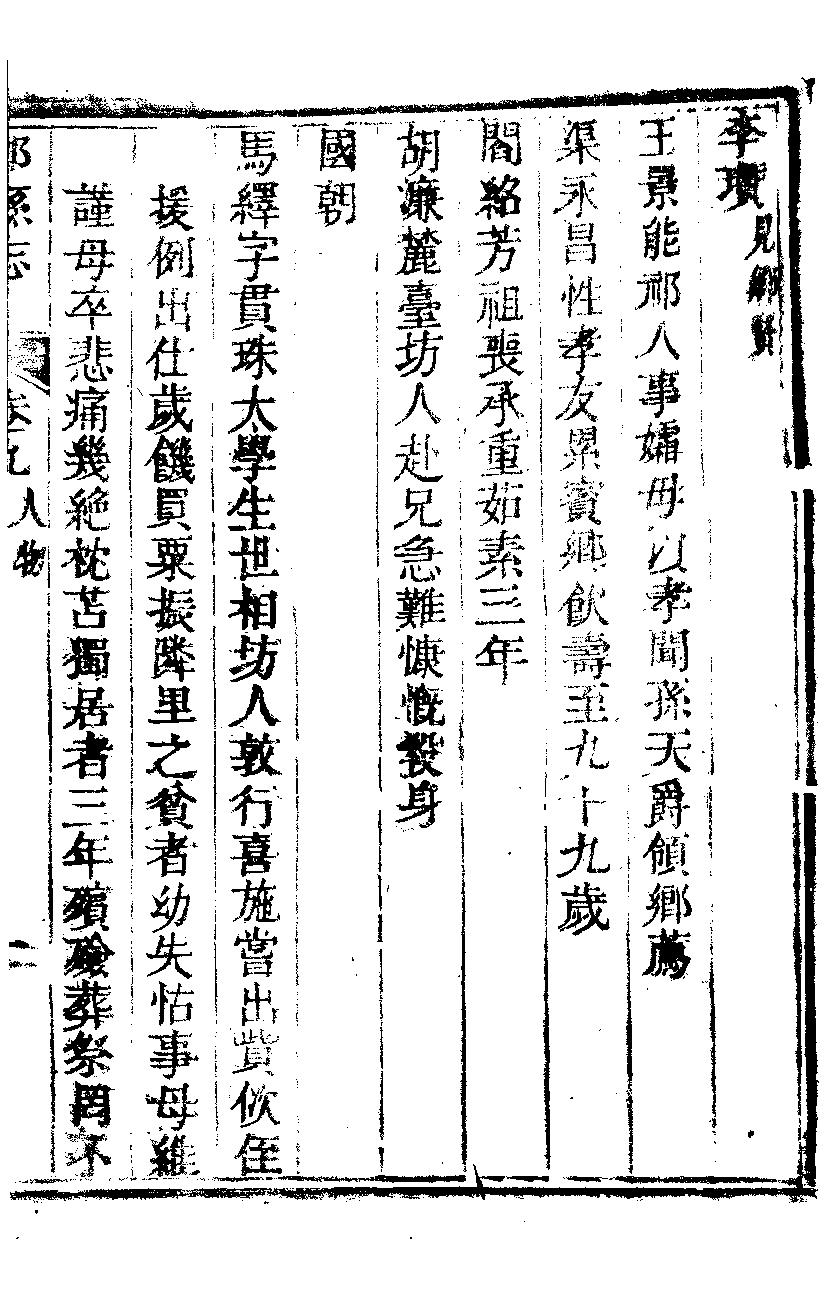 李瓚見鄉賢
王景能祁人事孀母以孝聞孫天爵領鄉薦
渠永昌性孝友累賓鄉飲壽至九十九歲
閻絡芳祖喪承重茹素三年
胡濂麓臺坊人赴兄急難慷慨殺身
國朝
馬繹字貫珠太學生世相坊人敦行喜施嘗出貲佽侄
援例出仕歲饑買粟振隣里之貧者幼失怙事母維
謹母卒悲痛幾絶枕苫獨居者三年殯殮葬祭罔不
祁縣志 卷九 人物 二